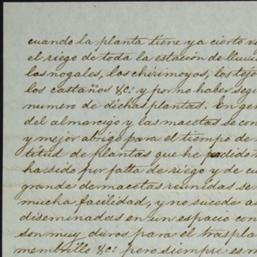 cuando la planta tiene ya cierto v
el riego de toda la estación de lluvi
los nogales, los chirimoyos, los tejo
los castaños &c: y por no haber segu
numero de dichas plantas. En gen
del almacijo y las macetas se con
y mejor abrigo para el tiempo de
titud de plantas que he podido
ha sido por falta de riego y de cu
grande de macetas reunidas se
mucha facilidad, y no sucede as
diseminadas en un espacio con
son muy duros para el traspla
membrillo &c: pero siempre es m